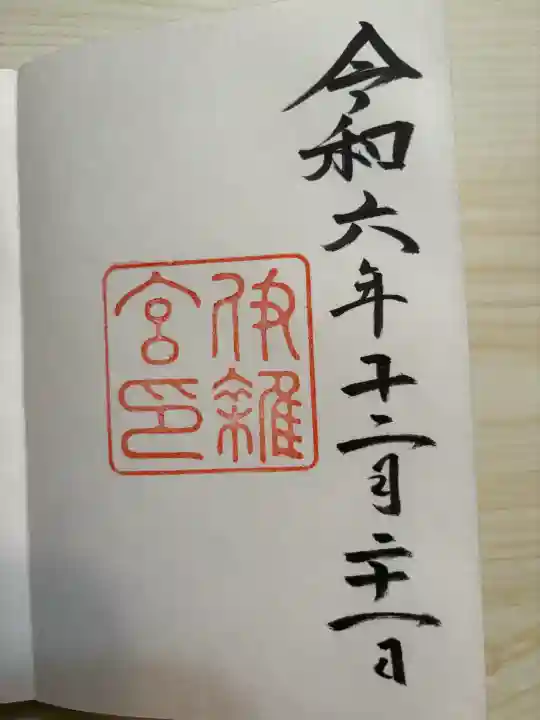 令和六年十二月二十一日
伊雜
宮印